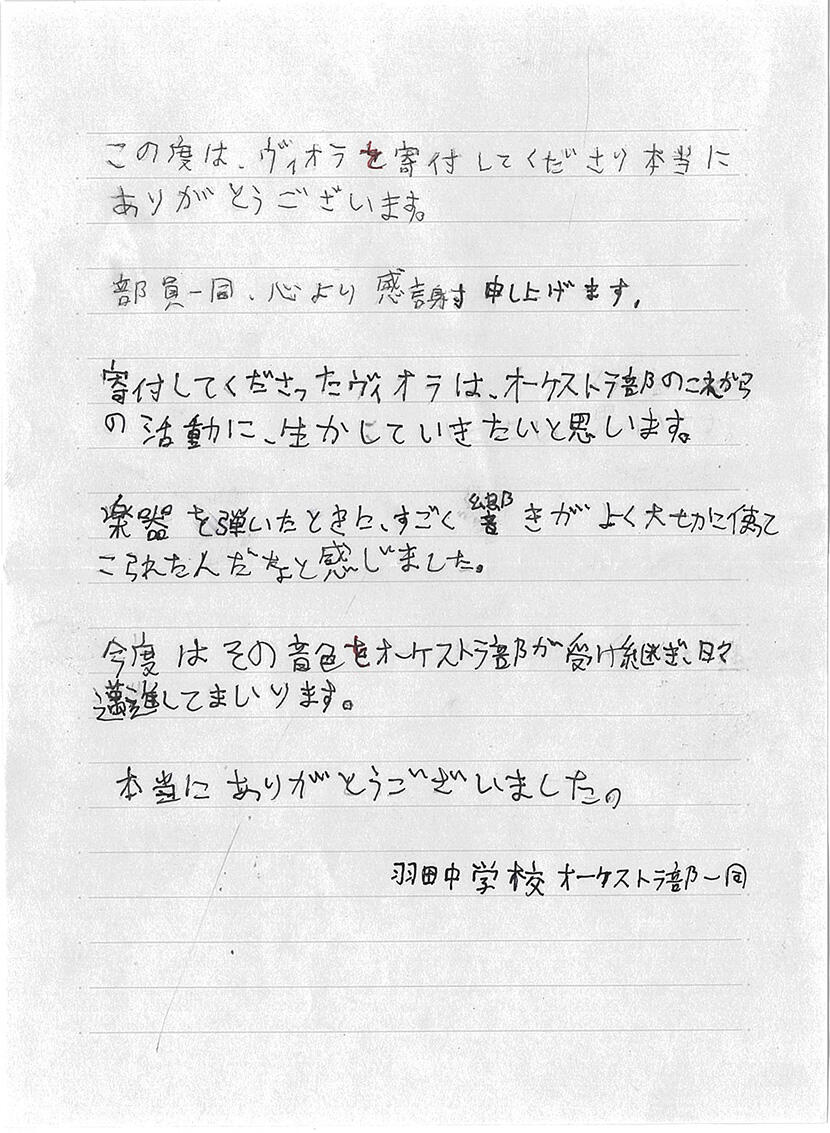 この度は、ヴィオラを寄付してくださり本当に
ありがとうございます。
部員一同、心より感謝申し上げます。
寄付してくださったヴィオラは、オーケストラ部のこれから
の活動に、生かしていきたいと思います。
楽器を弾いたときに、すごく響きがよく大切に使って
こられたんだなと感じました。
今度はその音色をオーケストラ部が受け継ぎ、日々
邁進してまいります。
本当にありがとうございました。
羽田中学校オーケストラ部一同